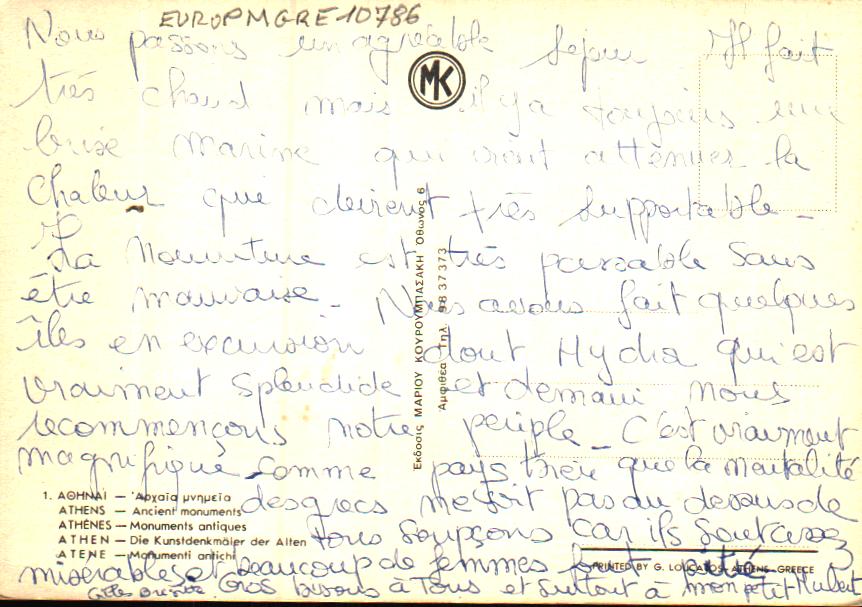 EUROPMGRE10786
Nous passons un agréable sejour Il fait
très chaud mais il y a toujours une
brise marine qui vient attenuer la
chaleur qui devient très supportable _
La nourriture est très passable sans
être mauvaise _ Nous avons fait quelques
îles en excursion dont Hydra qui est
vraiment splendide et demain nous
recommençons notre periple _ C'est vraiment
magnifique comme pays bien que la mentalité
des grecs ne soit pas au dessus de
tous soupçons car ils sont assez
misérables et beaucoup de femmes font pitié
Gros bisous à Tous et surtout à mon petit Hubert
Gilles
MK
Εκδοσις ΜΑΡΙΟΥ ΚΟΥΡΟΥΜΠΑΣΑΚΗ Όθωνος 6
Αμφιθέα Τηλ. 98 37 373
1. ΑΘΗΝΑΙ — Ἀρχαῖα μνημεῖα
ATHENS — Ancient monuments
ATHÈNES — Monuments antiques
ATHEN — Die Kunstdenkmäler der Alten
ATENE — Monumenti antichi
PRINTED BY G. LOUCATOS - ATHENS - GREECE